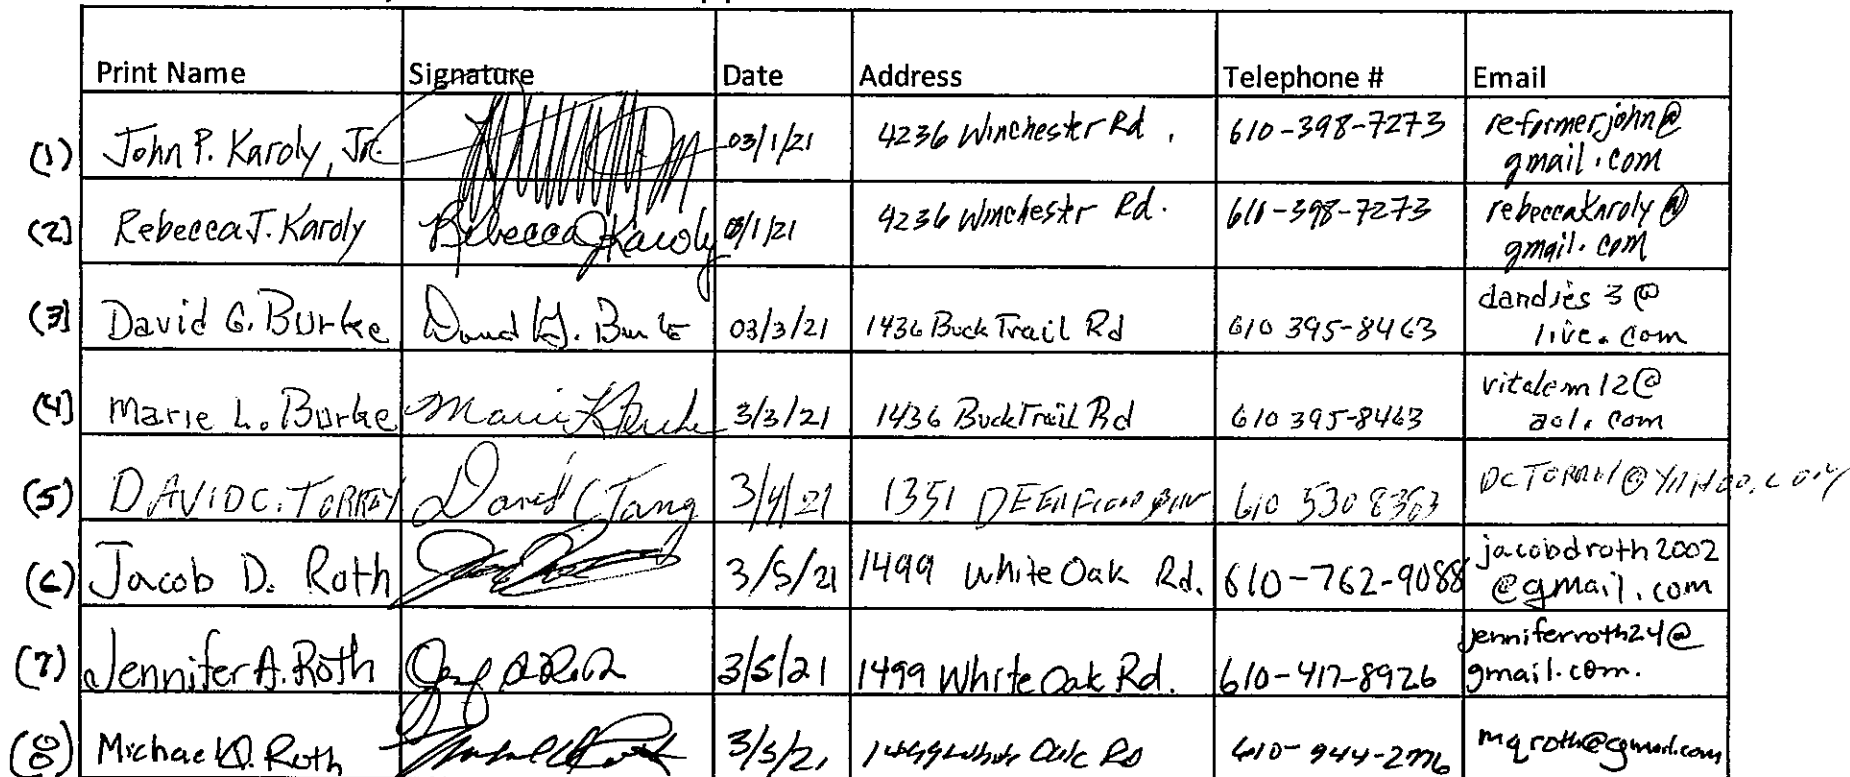 Print Name Signature Date Address Telephone # Email
(1) John P. Karoly, Jr. 03/1/21 4236 Winchester Rd. 610-398-7273 reformerjohn@
gmail.com
(2) Rebecca J. Karoly Rebecca J Karoly 3/1/21 4236 Winchester Rd. 610-398-7273 rebeccakaroly@
gmail.com
(3) David G. Burke David G. Burke 03/3/21 1436 Buck Trail Rd 610 395-8463 dandjes3@
live.com
(4) Marie L. Burke Marie L Burke 3/3/21 1436 Buck Trail Rd 610 395-8463 vitalem12@
aol.com
(5) DAVID C. TORREY David C 3/4/21 1351 610 530 8363
(6) Jacob D. Roth 3/5/21 1499 White Oak Rd. 610-762-9088 jacobdroth2002
@gmail.com
(7) Jennifer A. Roth 3/5/21 1499 White Oak Rd. 610-417-8926 jenniferroth24@
gmail.com.
(8) Michael Q. Roth 3/5/21 1499 White Oak Rd 610-944-2776 mqroth@gmail.com